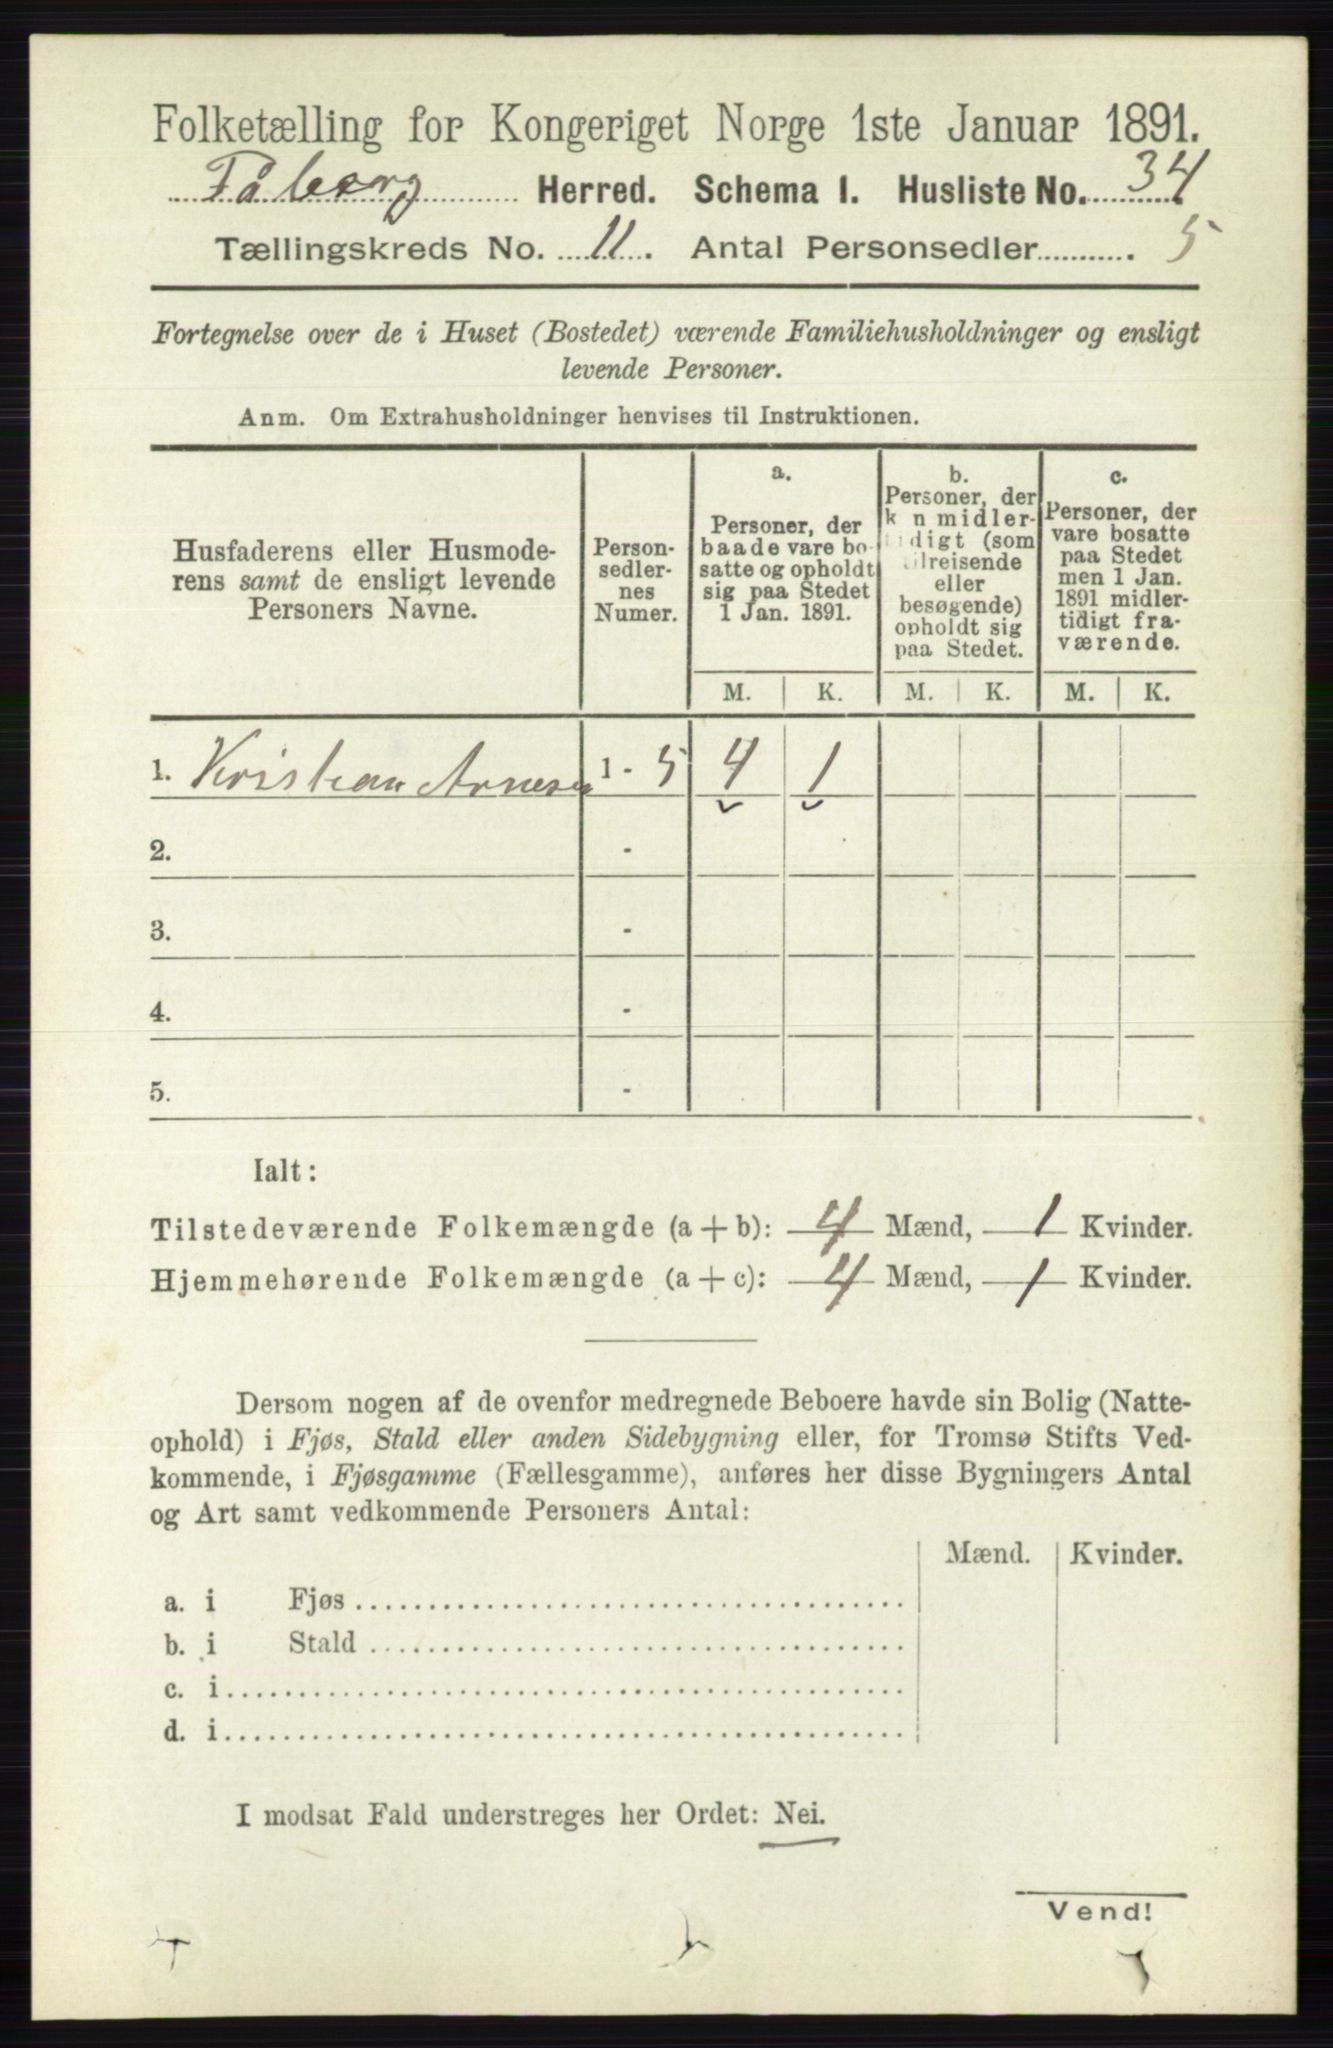 Folketælling for Kongeriget Norge 1ste Januar 1891.
Fåberg Herred. Schema I. Husliste No. 34
Tællingskreds No. 11. Antal Personsedler 5.
Fortegnelse over de i Huset (Bostedet) værende Familiehusholdninger og ensligt
levende Personer.
Anm. Om Extrahusholdninger henvises til Instruktionen.
Husfaderens eller Husmode-
rens samt de ensligt levende
Personers Navne.
Person-
sedler-
nes
Numer.
a.
Personer, der
baade vare bo-
satte og opholdt
sig paa Stedet
1 Jan. 1891.
b.
Personer, der
k n midler-
tidigt (som
tilreisende
eller
besøgende)
opholdt sig
paa Stedet.
c.
Personer, der
vare bosatte
paa Stedet
men 1 Jan.
1891 midler-
tidigt fra-
værende.
M. K. M. K. M. K.
1. Kristian Arnesen 1 - 5 4 1
2. -
3. -
4. -
5. -
Ialt:
Tilstedeværende Folkemængde (a + b): 4 Mænd, 1 Kvinder.
Hjemmehørende Folkemængde (a + c): 4 Mænd, 1 Kvinder.
Dersom nogen af de ovenfor medregnede Beboere havde sin Bolig (Natte-
ophold) i Fjøs, Stald eller anden Sidebygning eller, for Tromsø Stifts Ved-
kommende, i Fjøsgamme (Fællesgamme), anføres her disse Bygningers Antal
og Art samt vedkommende Personers Antal:
Mænd. Kvinder.
a. i Fjøs
b. i Stald
c. i
d. i
I modsat Fald understreges her Ordet: Nei.
Vend!